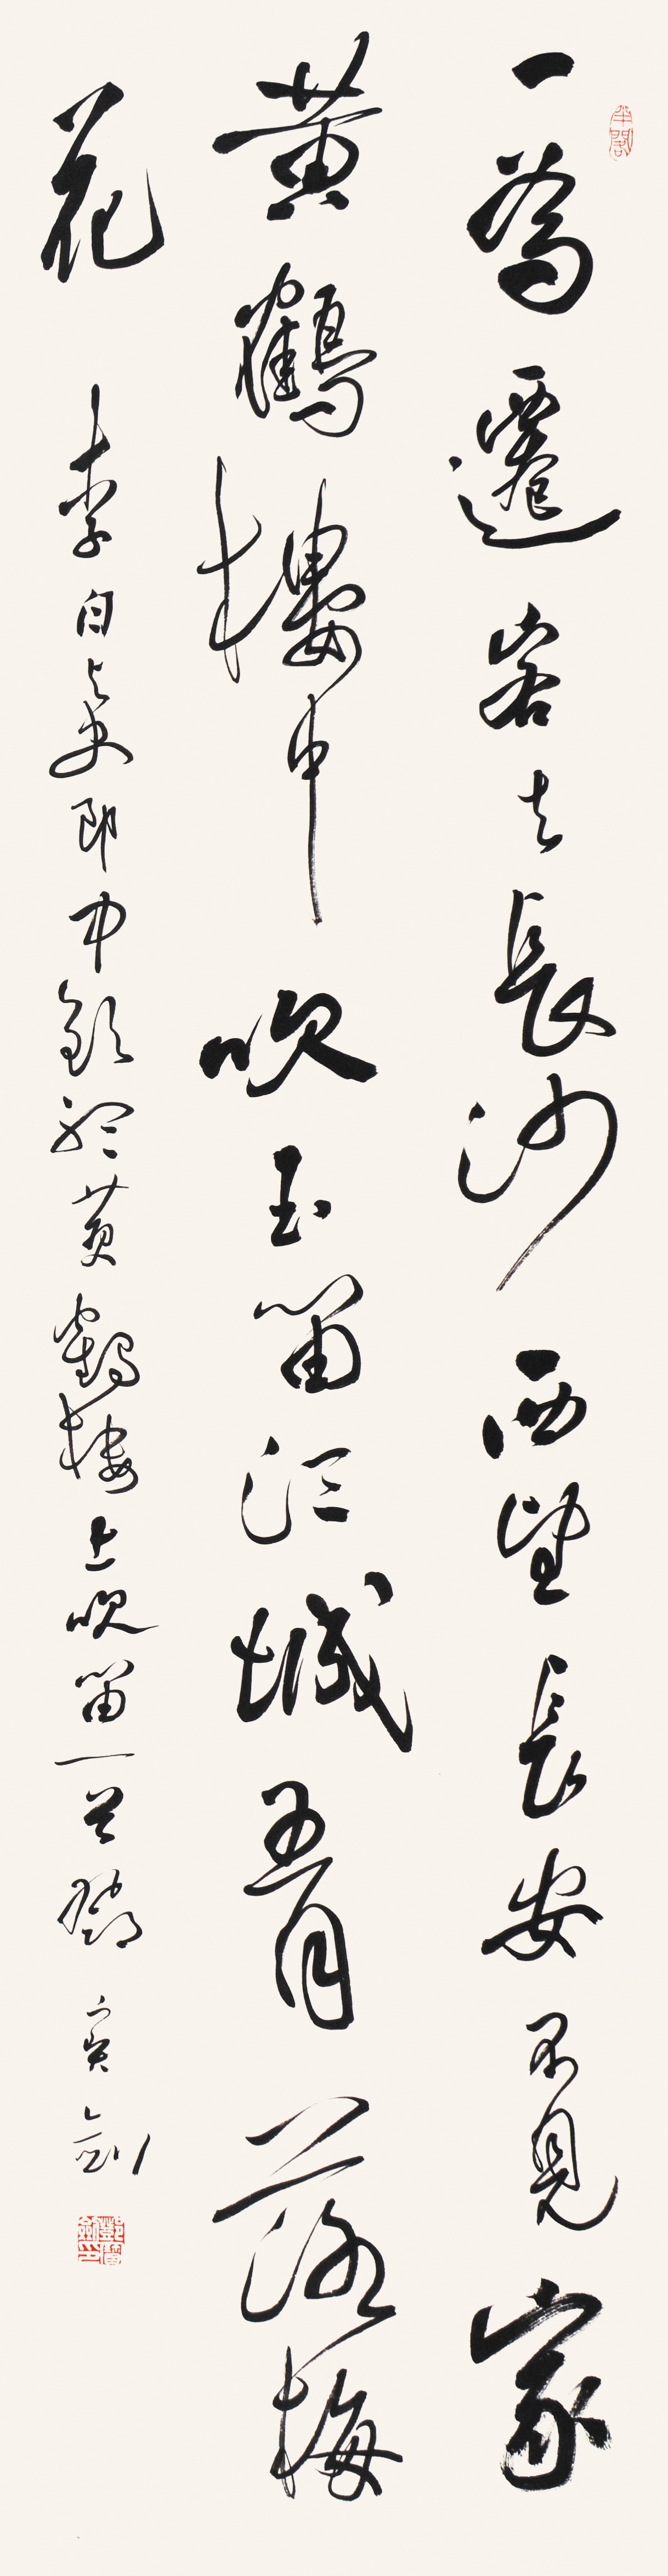 一為遷客去長沙西望長安不見家
黃鶴樓中吹玉笛江城五月落梅
花
李白与史郎中欽聽黃鶴樓上吹笛一首鄧寶劍
鄧寶劍印